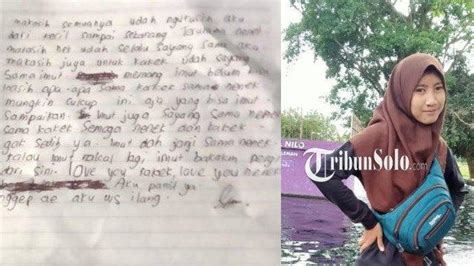 makasih semuanya udah ngurusin aku
dari kecil sampai sekarang terutama nenek
makasih nek udah selalu sayang sama aku
makasih juga untuk kakek udah sayang
sama imut memang imut belum
kasih apa-apa sama kakek sama nenek
mungkin cukup ini aja yang bisa imut
sampaikan imut juga sayang sama nenek
sama kakek semoga nenek dan kakek
gak sedih ya imut dah janji sama nenek
kalau imut nakal bg, imut bakalan pergi
dari sini. love you kakek, love you nenek
Aku pamit ya
nggep ae aku ws ilang
NILO
TribunSolo.com